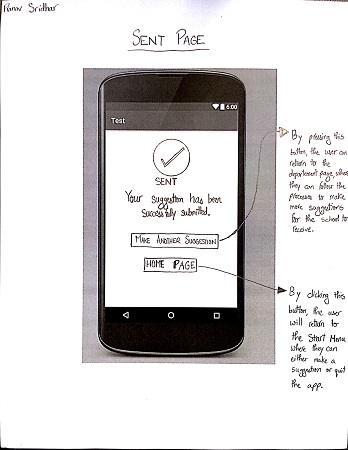 Pranav Sridhar
SENT PAGE
6:00
Test
SENT
Your suggestion has been
successfully submitted.
MAKE ANOTHER SUGGESTION
HOME PAGE
By pressing this
button, the user can
return to the
department page, where
they can follow the
processes to make
more suggestions
for the school to
receive.
By clicking this
button, the user
will return to
the Start Menu
where they can
either make a
suggestion or quit
the app.